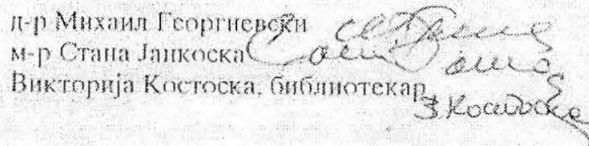 д-р Михаил Георгиевски
м-р Стана Јанкоска
Викторија Костоска, библиотекар
В. Костоска